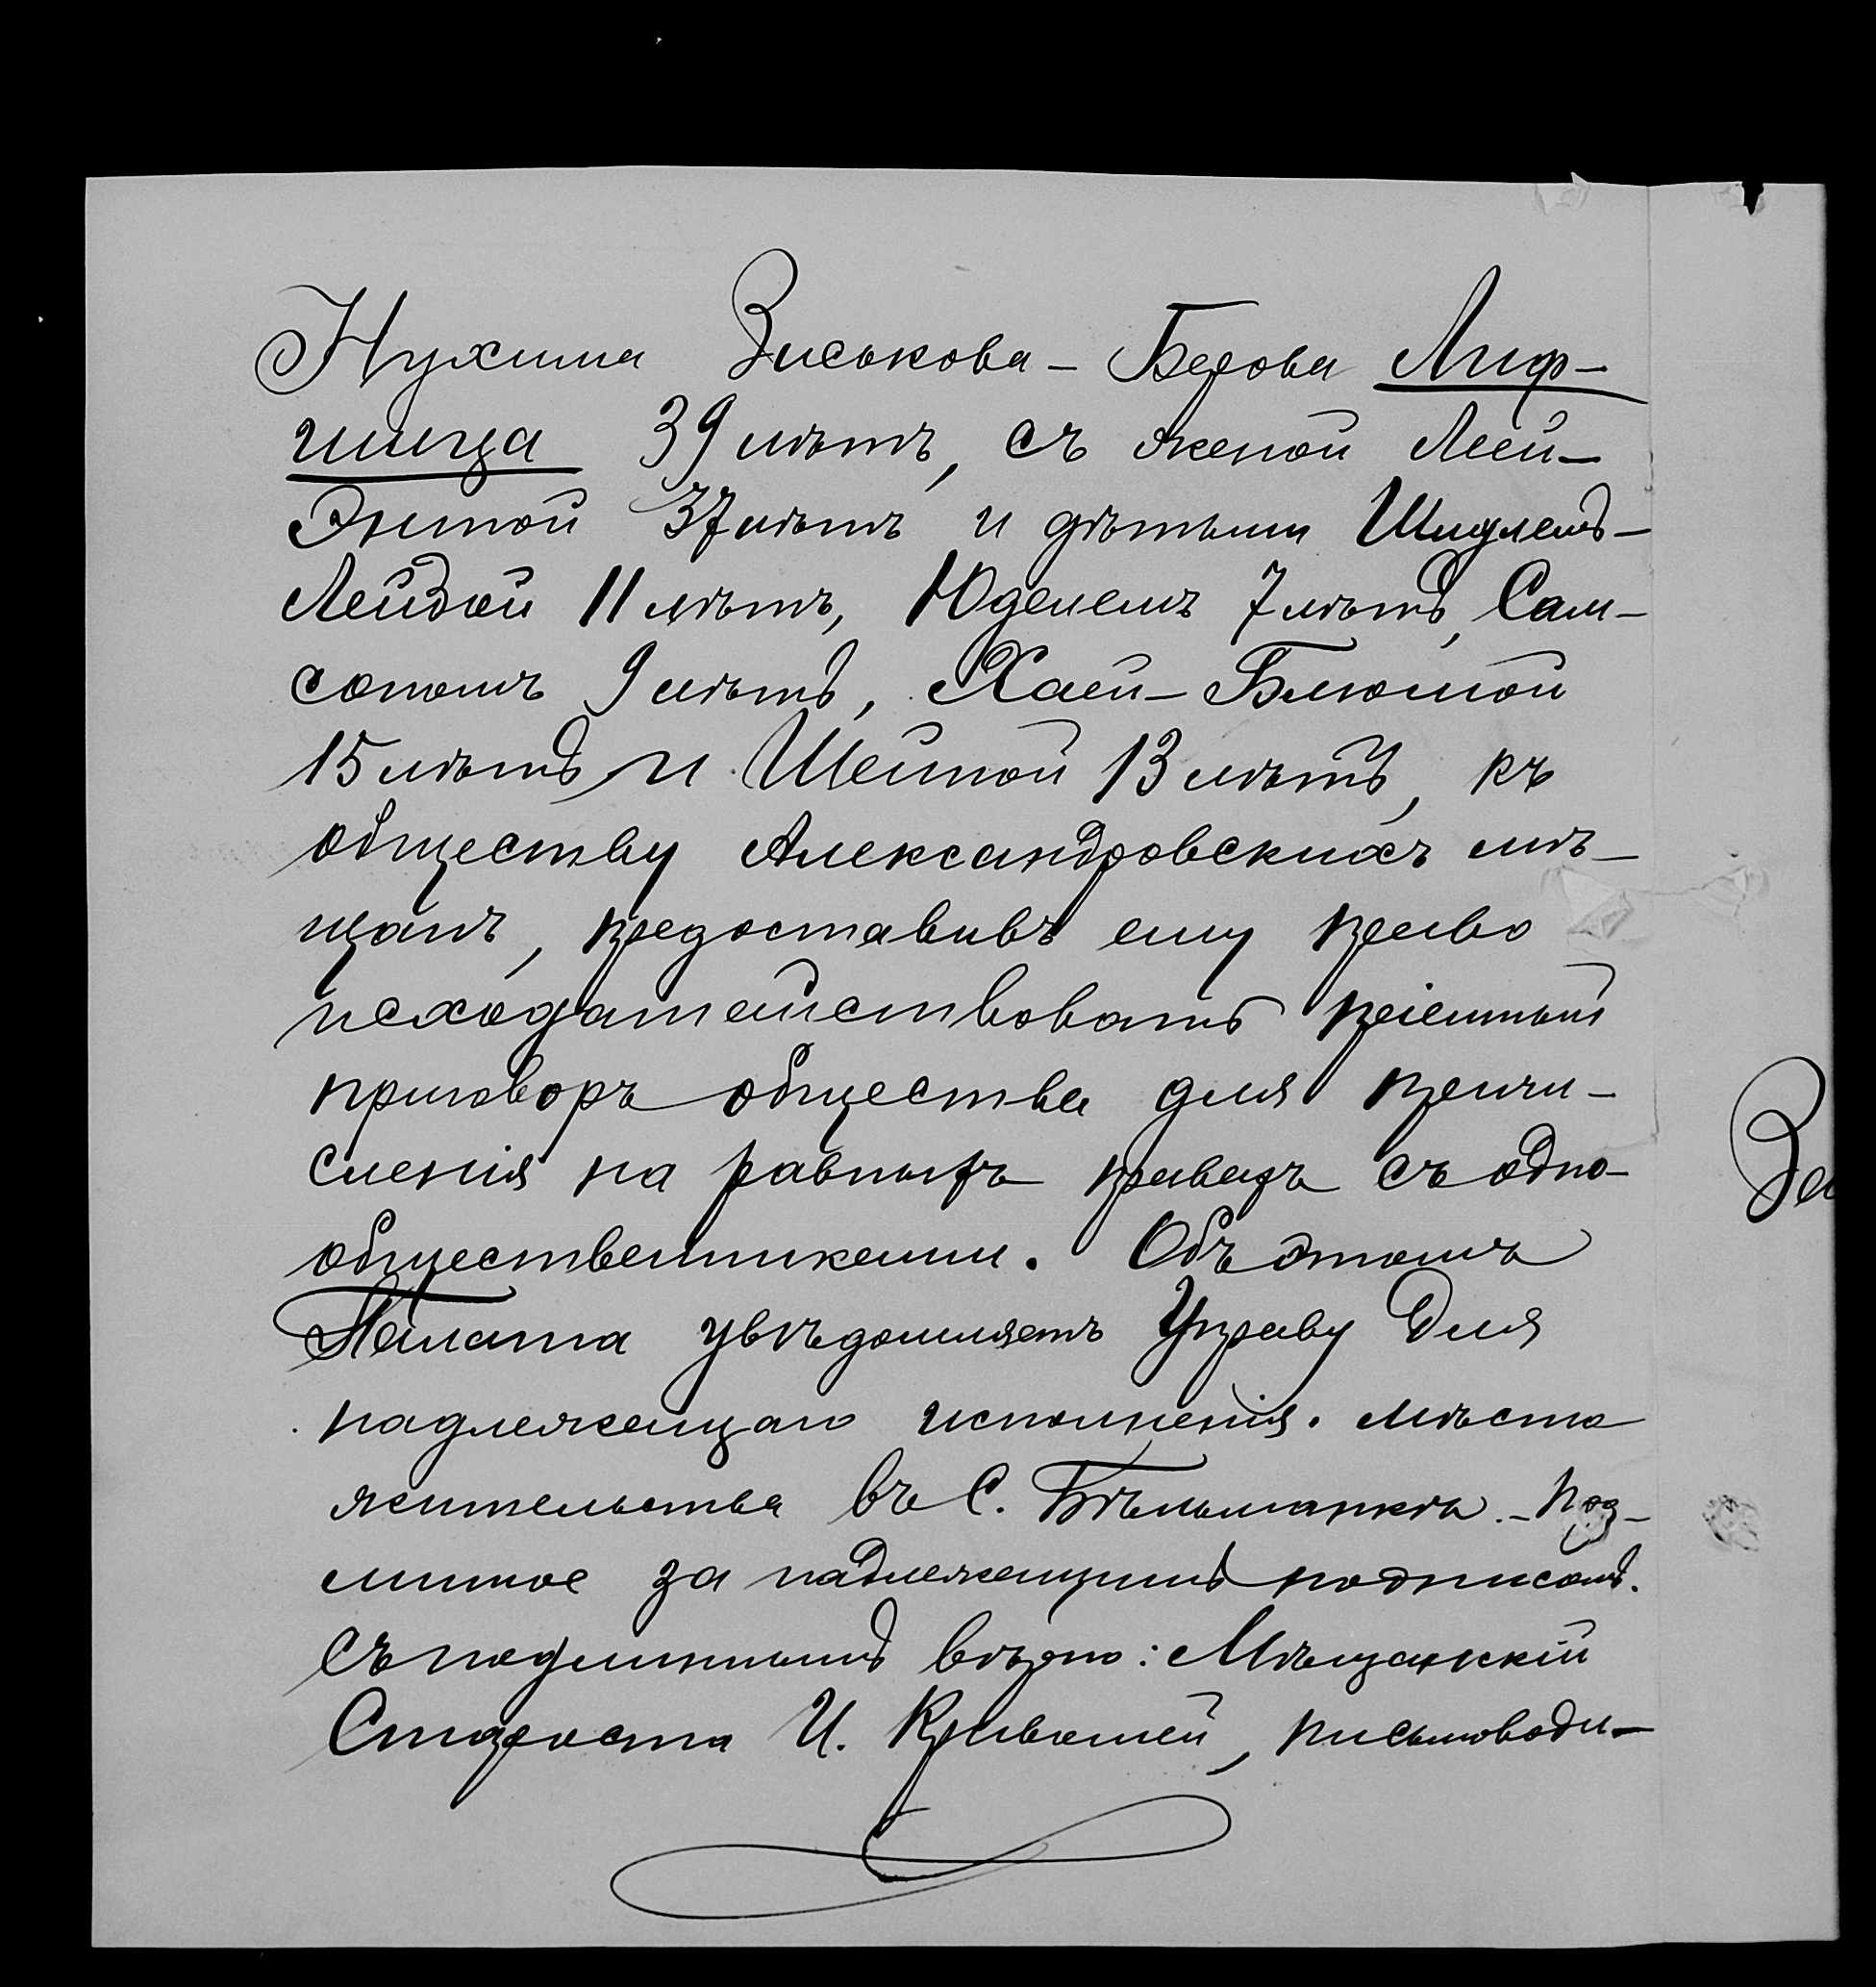 Нухима Зиськова-Берова Лиф-
шица 39 лѣтъ, съ женой Леей-
Энтой 37 лѣтъ и дѣтьми Шидлемъ-
Лейбой 11 лѣтъ, Юделемъ 7 лѣтъ, Сам-
сономъ 9 лѣтъ, Хаей-Блюмой
15 лѣтъ и Шейной 13 лѣтъ, къ
обществу Александровскихъ мѣ-
щанъ, предоставивъ ему право
исходатайствовать пріемный
приговоръ общества для причи-
сленія на равныхъ правахъ съ одно-
общественниками. Объ этомъ
Палата увѣдомляетъ Управу для
надлежащаго исполненія. Мѣсто
жительства въ С. Бѣльманкѣ.-Под-
линное за надлежащимъ подписомъ.
Съ подлиннымъ вѣрно: Мѣщанскій
Староста И. Кривошей, письмоводи-
За